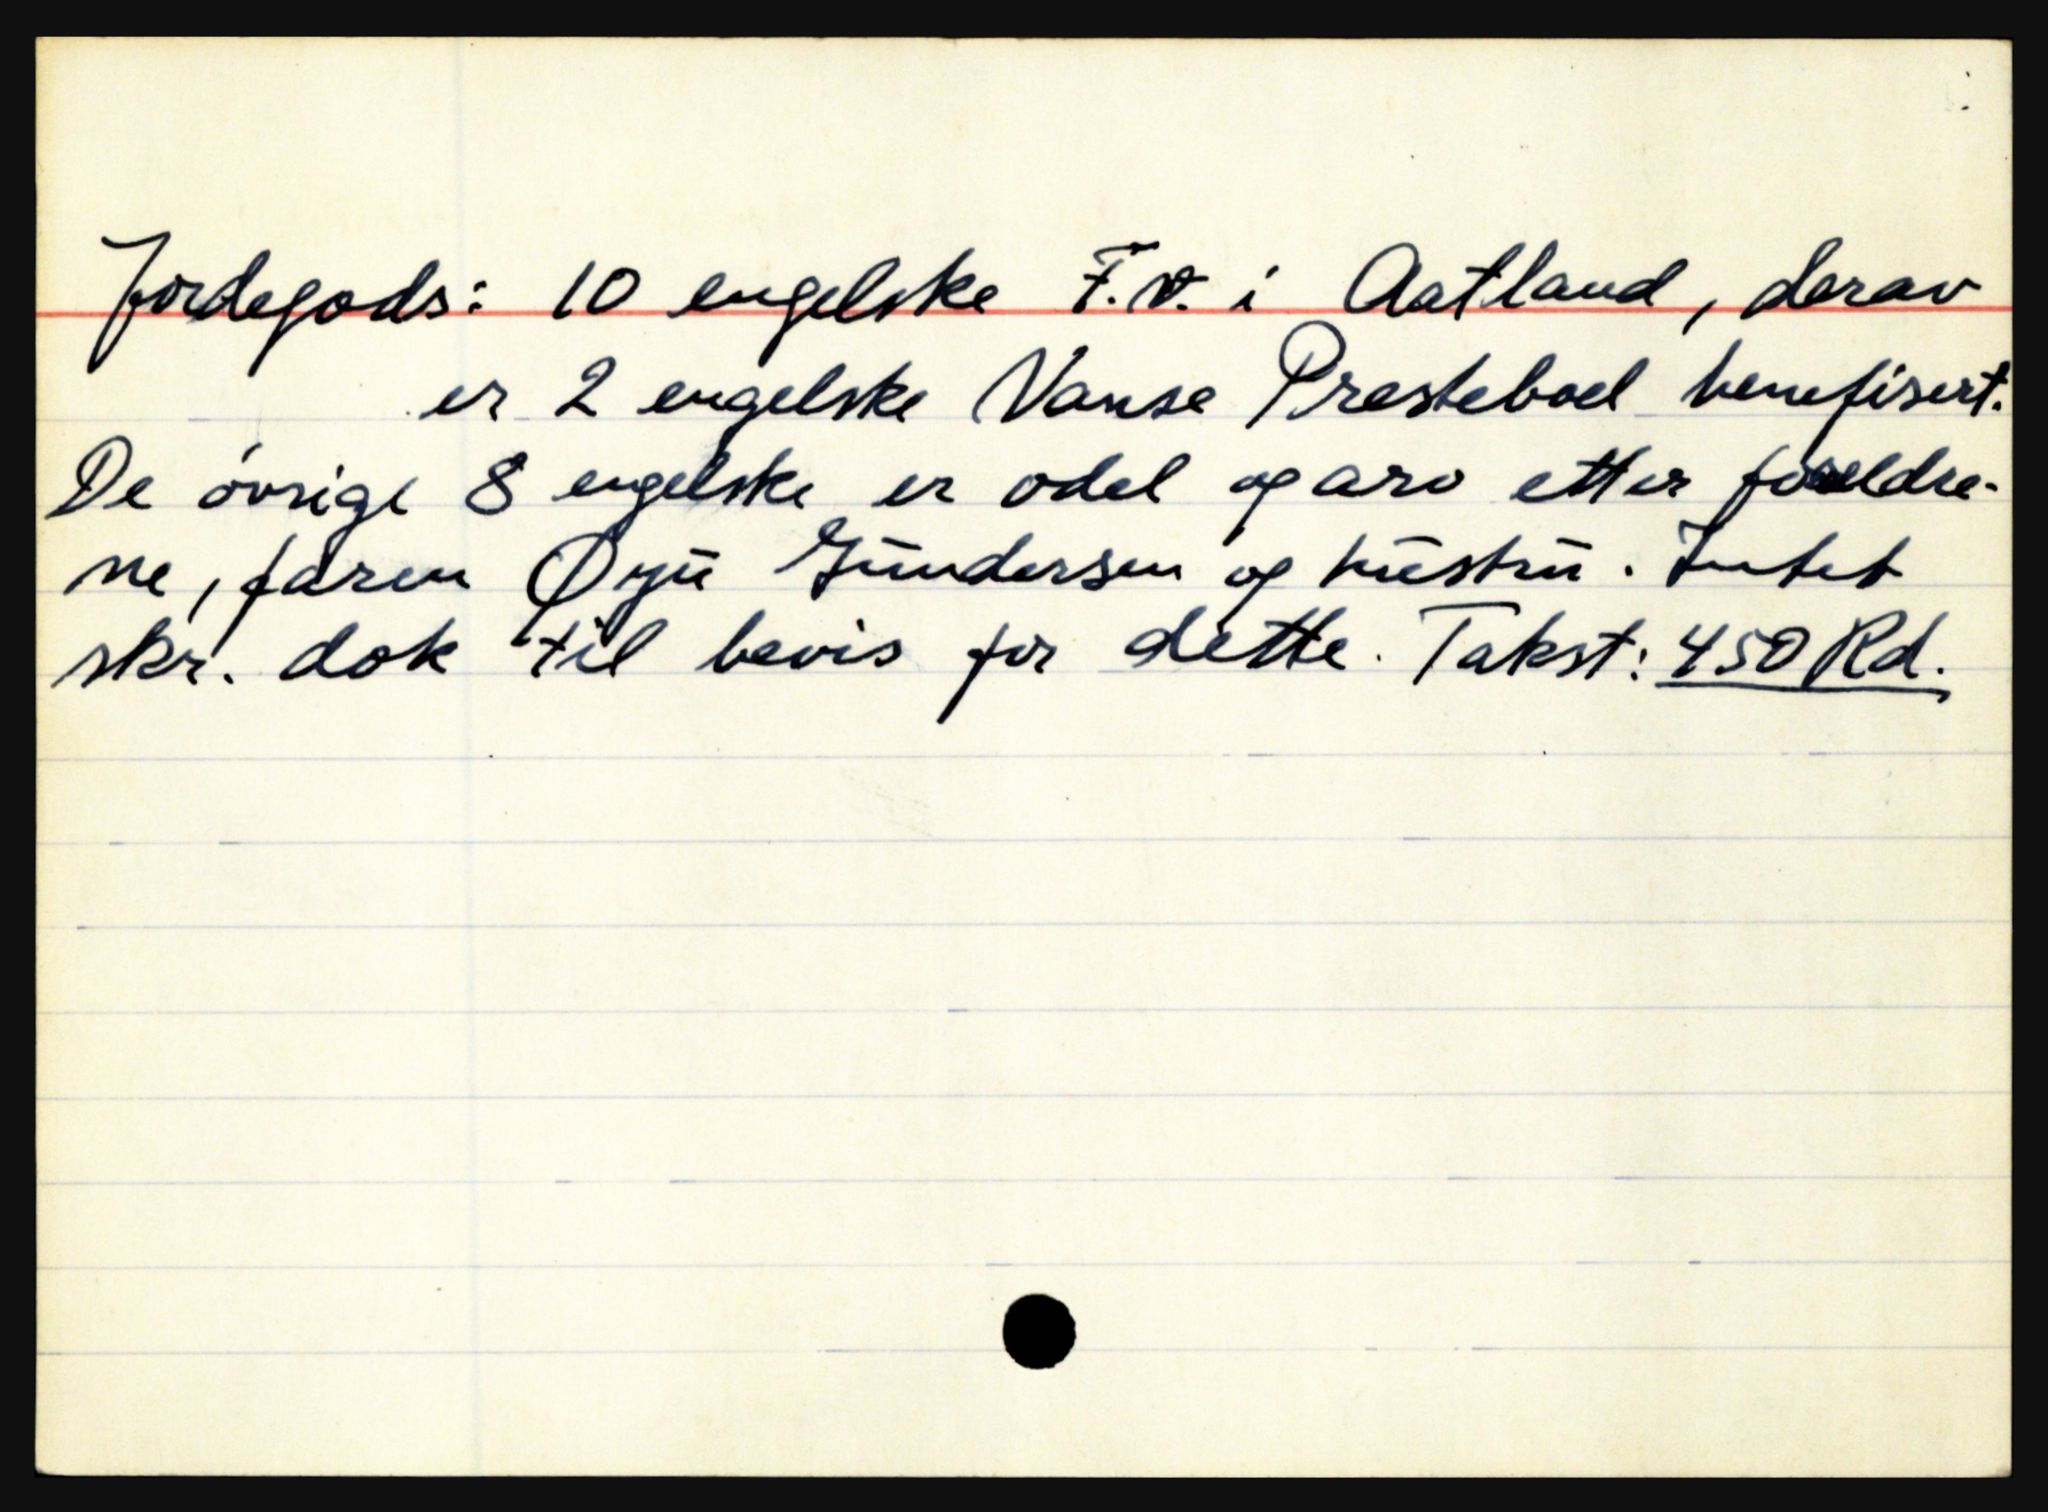 Jordegods: 10 engelske F.v. i Aatland, derav
er 2 engelske Vanse Presteboel benefisert.
De óvrige 8 engelske er odel og arv etter foreldre-
ne, faren Øyü Gündersen og hüstrü. Intet
skr. dok til bevis for dette. Takst: 450 Rd.